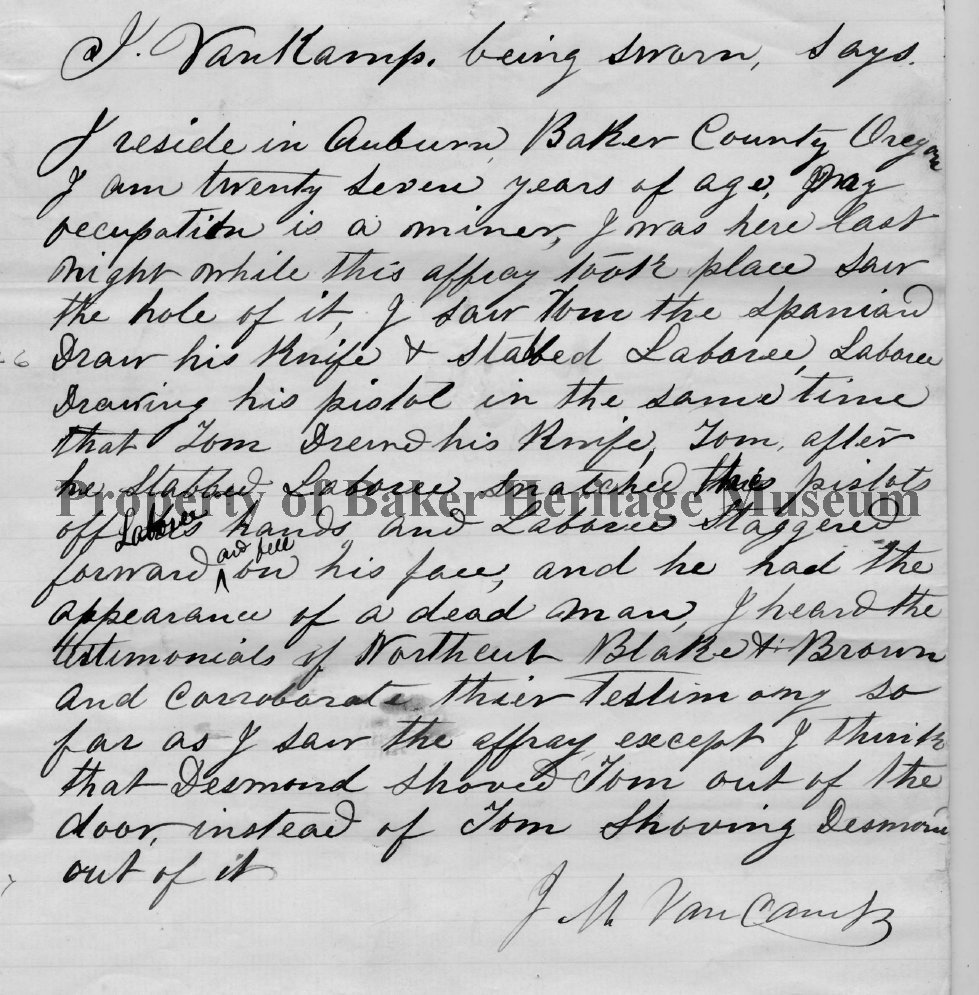 J. VanKamp. being sworn, says.
I reside in Auburn, Baker County Oregon
I am twenty seven years of age, my
occupation is a miner, I was here last
night while this affray took place saw
the hole of it, I saw Tom the Spaniard
Draw his Knife & stabbed Laboree, Laboree
Drawing his pistol in the same time
that Tom Drew his Knife, Tom, after
he stabbed Laboree snatched the pistols
Property of Baker Heritage Museum
off Laboree's hands and Laboree staggered
forward and fell on his face, and he had the
appearance of a dead man, I heard the
testimonials of Northcut Blake & Brown
and corroborate thier Testimony so
far as I saw the affray, except I think
that Desmond shoved Tom out of the
door, instead of Tom shoving Desmond
out of it
J M VanCamp